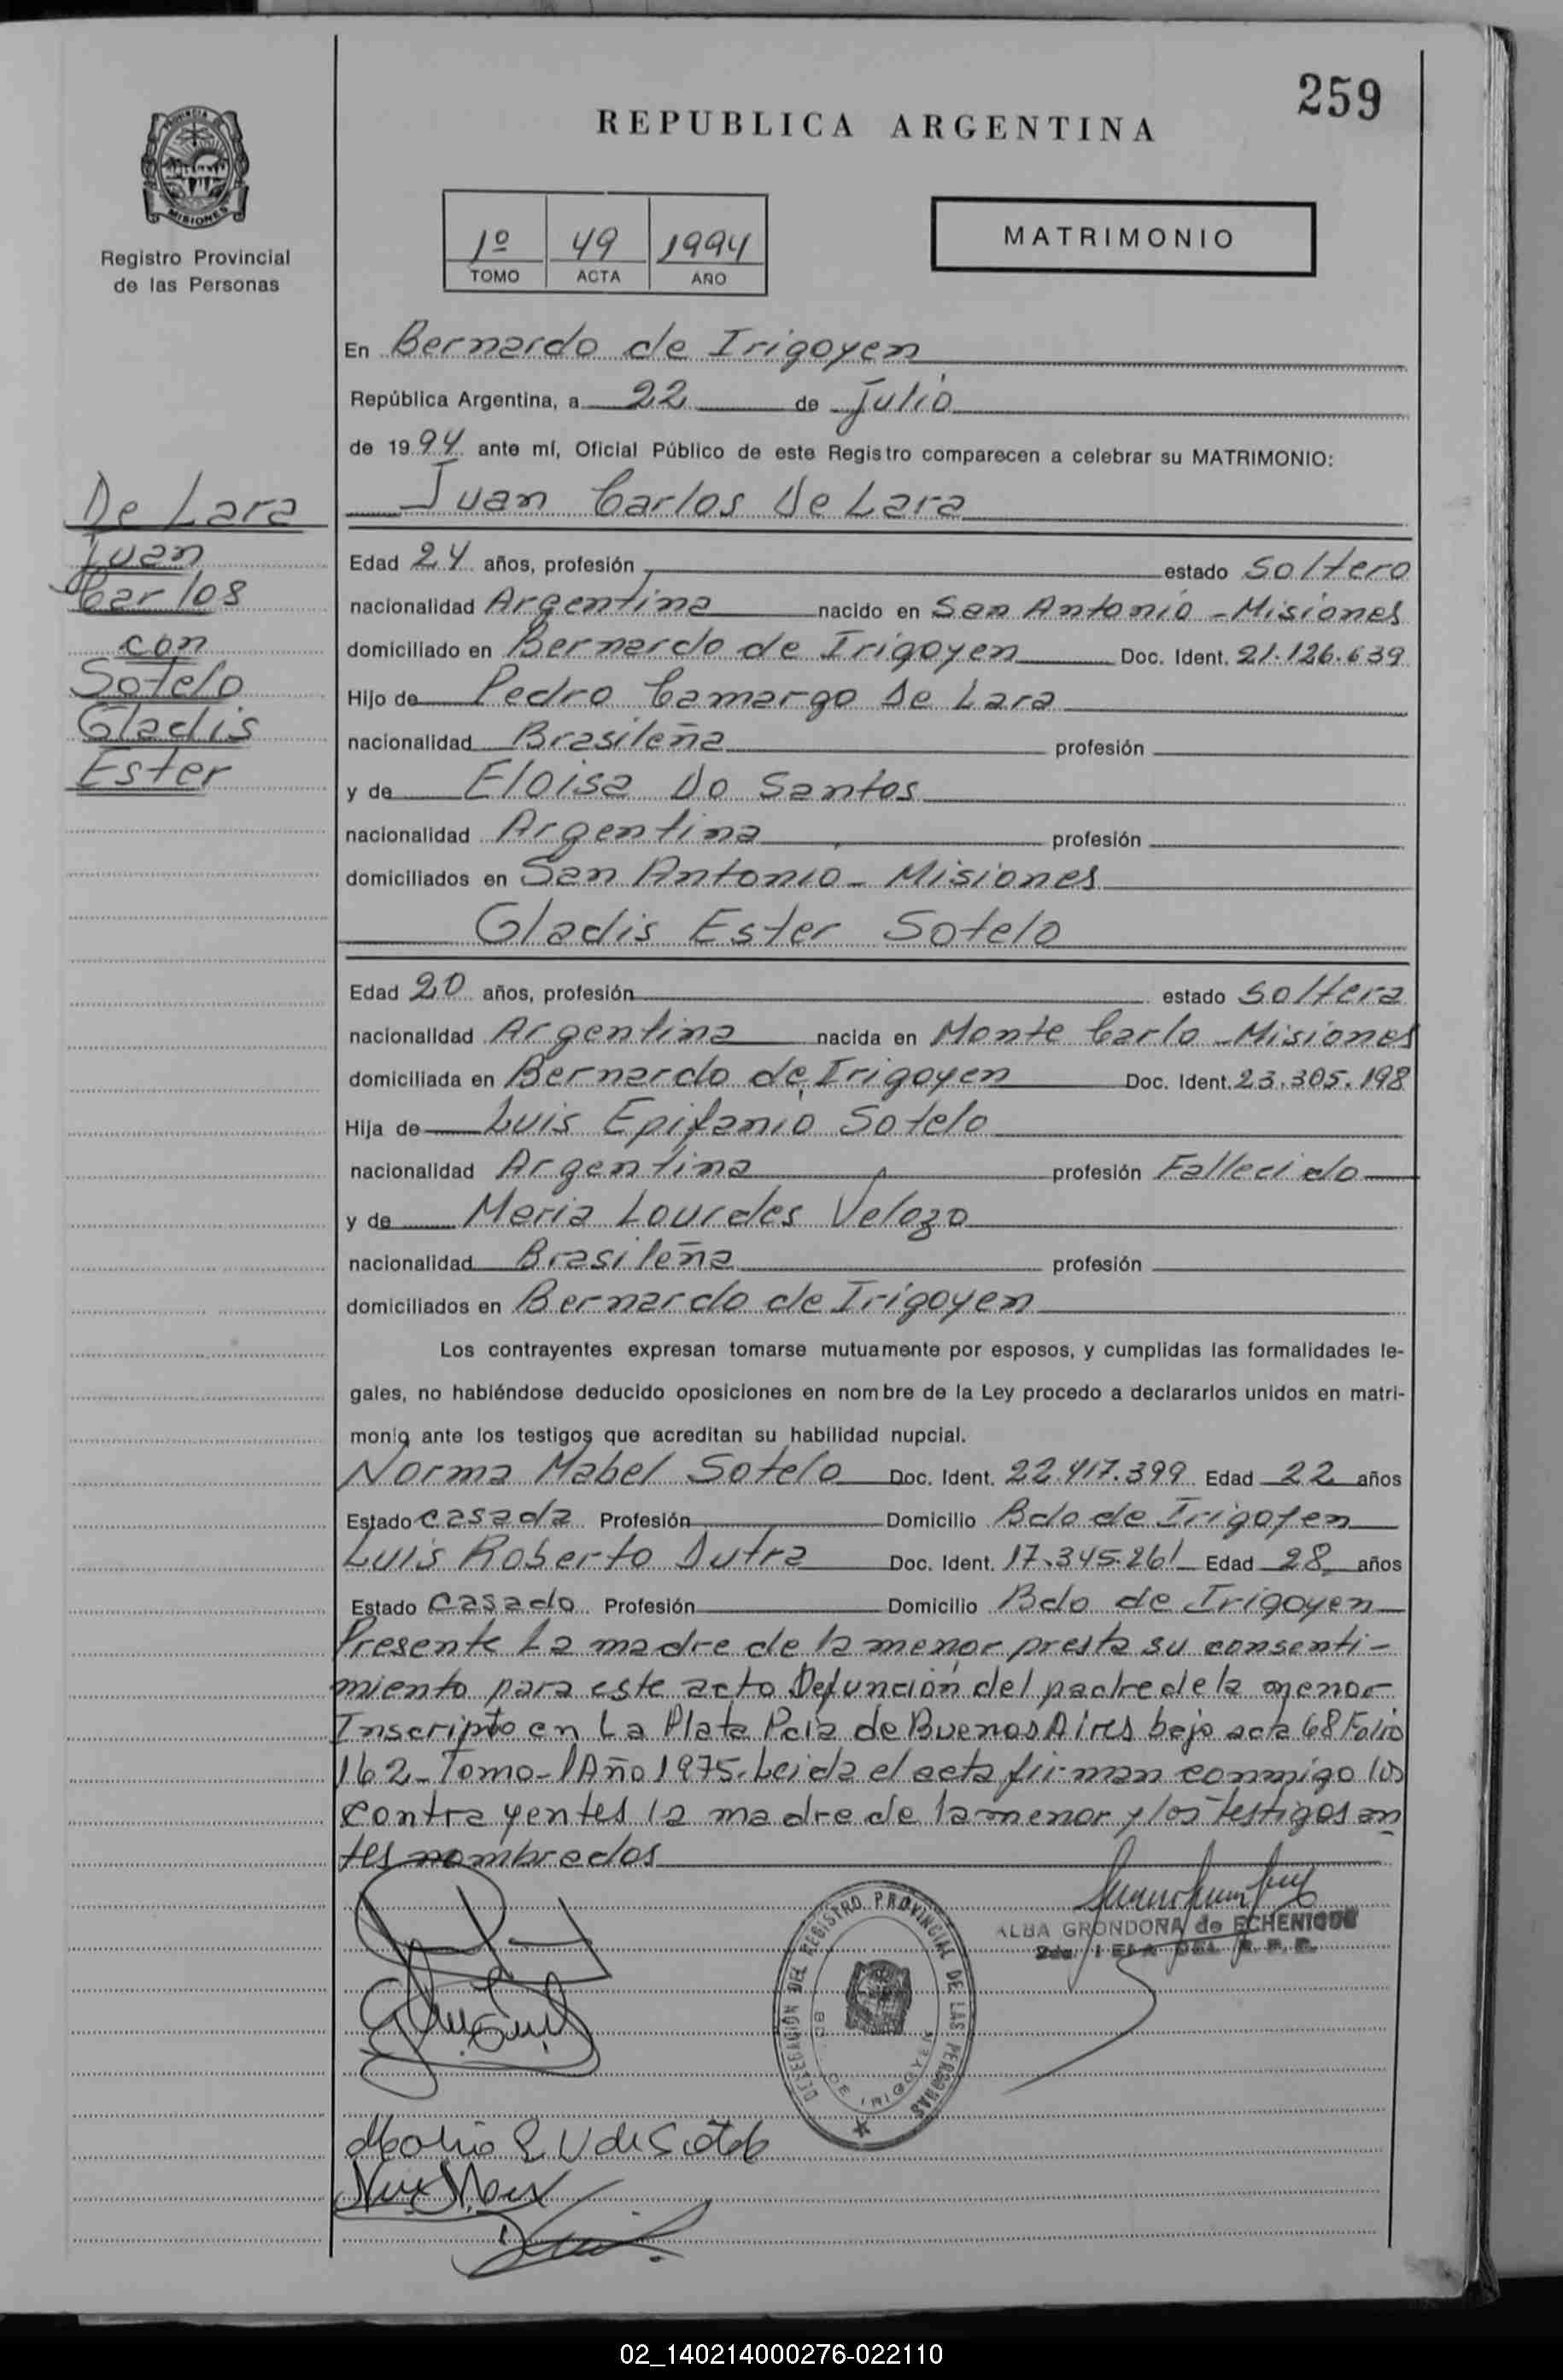 259
REPUBLICA ARGENTINA
PROVINCIA DE
MISIONES
Registro Provincial
de las Personas
1º 49 1994
TOMO ACTA AÑO
MATRIMONIO
En Bernardo de Irigoyen
República Argentina, a 22 de Julio
de 1994 ante mí, Oficial Público de este Registro comparecen a celebrar su MATRIMONIO:
Juan Carlos De Lara
De Lara
Juan
Carlos
con
Sotelo
Gladis
Ester
Edad 24 años, profesión estado Soltero
nacionalidad Argentina nacido en San Antonio - Misiones
domiciliado en Bernardo de Irigoyen Doc. Ident. 21.126.639
Hijo de Pedro Camargo De Lara
nacionalidad Brasileña profesión
y de Eloisa Do Santos
nacionalidad Argentina profesión
domiciliados en San Antonio - Misiones
Gladis Ester Sotelo
Edad 20 años, profesión estado Soltera
nacionalidad Argentina nacida en Monte Carlo - Misiones
domiciliada en Bernardo de Irigoyen Doc. Ident. 23.305.198
Hija de Luis Epifanio Sotelo
nacionalidad Argentina profesión Fallecido
y de Maria Lourdes Velozo
nacionalidad Brasileña profesión
domiciliados en Bernardo de Irigoyen
Los contrayentes expresan tomarse mutuamente por esposos, y cumplidas las formalidades le-
gales, no habiéndose deducido oposiciones en nombre de la Ley procedo a declararlos unidos en matri-
monio ante los testigos que acreditan su habilidad nupcial.
Norma Mabel Sotelo Doc. Ident. 22.417.399 Edad 22 años
Estado casada Profesión Domicilio Bdo de Irigoyen
Luis Roberto Dutra Doc. Ident. 17.345.261 Edad 28 años
Estado casado Profesión Domicilio Bdo de Irigoyen
Presente La madre de la menor presta su consenti-
miento para este acto Defunción del padre de la menor
Inscripto en La Plata Pcia de Buenos Aires bajo acta 68 Folio
162 - Tomo - 1 Año 1975. Leida el acta firman conmigo los
contrayentes la madre de la menor y los testigos an
tes nombrados
ALBA GRONDONA de ECHENIQUE
DELEGACIÓN DEL REGISTRO PROVINCIAL DE LAS PERSONAS
BDO. DE IRIGOYEN
02_140214000276-022110